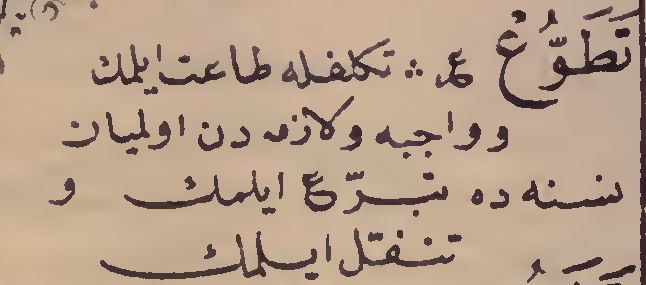 تَطَوُّعْ ع م ∴ تكلفله طاعت ايلمك
و واجبه و لازمه دن اولميان
نسنه ده تبرّع ايلمك و
تنفّل ايلمك